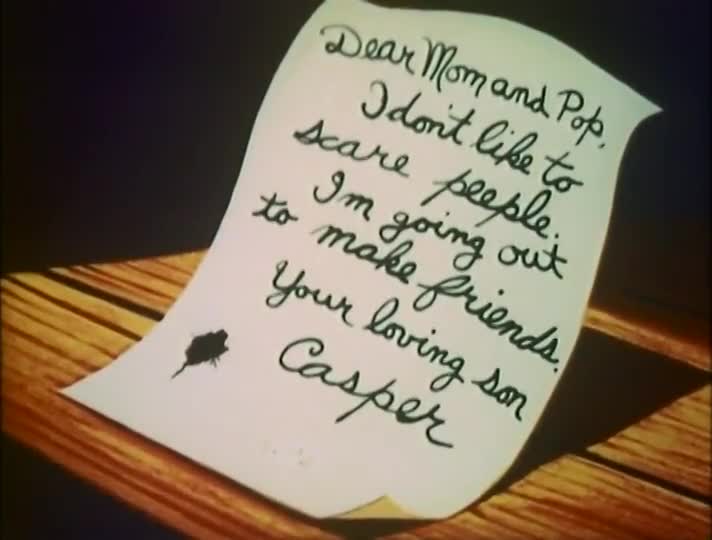 Dear Mom and Pop,
I don't like to
scare peeple.
I'm going out
to make friends.
Your loving son
Casper